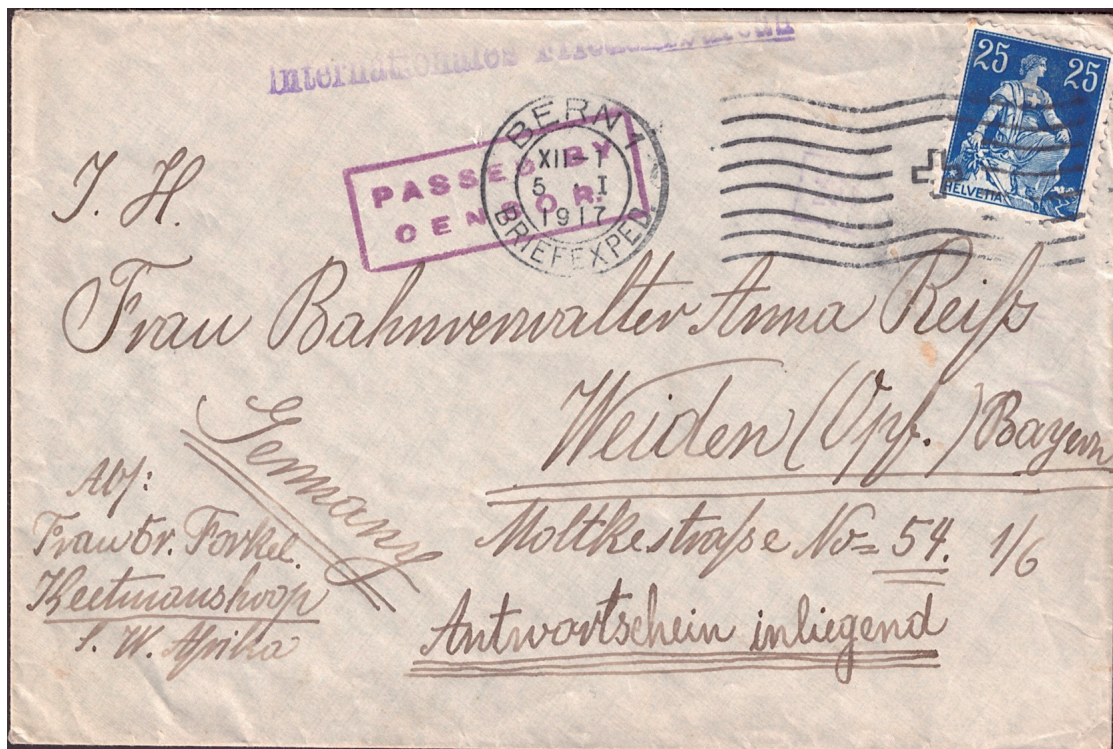 Internationales Friedensbureau
25 25
HELVETIA
BERN 1
XII-1
5 I
1917
BRIEFEXPED.
PASSED BY
CENSOR.
I. H.
Frau Bahnverwalter Anna Reiß
Weiden (Opf.) Bayern
Moltkestraße No= 54. 1/6
Antwortschein inliegend
Germany
Abs:
Frau Dr. Forkel.
Keetmanshoop
S. W. Afrika